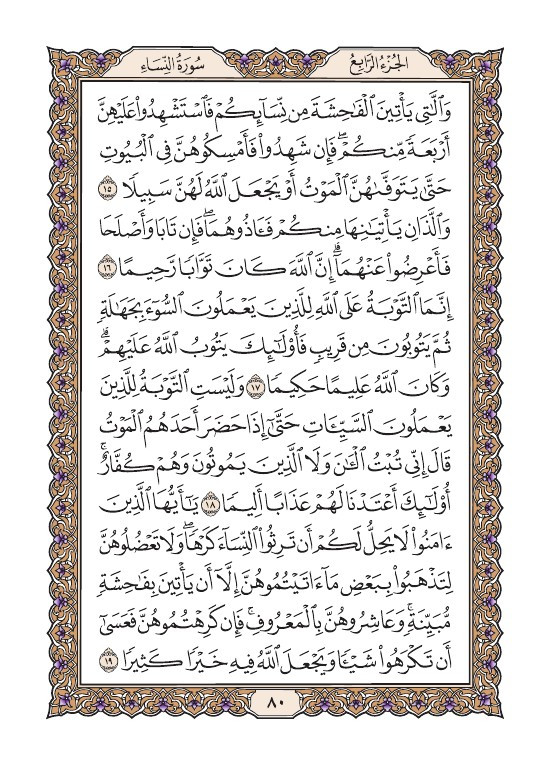 الجُزْءُ الرَّابِعُ
سُورَةُ النِّسَاءِ
وَٱلَّٰتِي يَأْتِينَ ٱلْفَٰحِشَةَ مِن نِّسَآئِكُمْ فَٱسْتَشْهِدُوا۟ عَلَيْهِنَّ
أَرْبَعَةً مِّنكُمْ ۖ فَإِن شَهِدُوا۟ فَأَمْسِكُوهُنَّ فِي ٱلْبُيُوتِ
حَتَّىٰ يَتَوَفَّىٰهُنَّ ٱلْمَوْتُ أَوْ يَجْعَلَ ٱللَّهُ لَهُنَّ سَبِيلًا ١٥
وَٱلَّذَانِ يَأْتِيَٰنِهَا مِنكُمْ فَـَٔاذُوهُمَا ۖ فَإِن تَابَا وَأَصْلَحَا
فَأَعْرِضُوا۟ عَنْهُمَآ ۗ إِنَّ ٱللَّهَ كَانَ تَوَّابًا رَّحِيمًا ١٦
إِنَّمَا ٱلتَّوْبَةُ عَلَى ٱللَّهِ لِلَّذِينَ يَعْمَلُونَ ٱلسُّوٓءَ بِجَهَٰلَةٍ
ثُمَّ يَتُوبُونَ مِن قَرِيبٍ فَأُو۟لَٰٓئِكَ يَتُوبُ ٱللَّهُ عَلَيْهِمْ ۗ
وَكَانَ ٱللَّهُ عَلِيمًا حَكِيمًا ١٧ وَلَيْسَتِ ٱلتَّوْبَةُ لِلَّذِينَ
يَعْمَلُونَ ٱلسَّيِّـَٔاتِ حَتَّىٰٓ إِذَا حَضَرَ أَحَدَهُمُ ٱلْمَوْتُ
قَالَ إِنِّي تُبْتُ ٱلْـَٰٔنَ وَلَا ٱلَّذِينَ يَمُوتُونَ وَهُمْ كُفَّارٌ ۚ
أُو۟لَٰٓئِكَ أَعْتَدْنَا لَهُمْ عَذَابًا أَلِيمًا ١٨ يَٰٓأَيُّهَا ٱلَّذِينَ
ءَامَنُوا۟ لَا يَحِلُّ لَكُمْ أَن تَرِثُوا۟ ٱلنِّسَآءَ كَرْهًا ۖ وَلَا تَعْضُلُوهُنَّ
لِتَذْهَبُوا۟ بِبَعْضِ مَآ ءَاتَيْتُمُوهُنَّ إِلَّآ أَن يَأْتِينَ بِفَٰحِشَةٍ
مُّبَيِّنَةٍ ۚ وَعَاشِرُوهُنَّ بِٱلْمَعْرُوفِ ۚ فَإِن كَرِهْتُمُوهُنَّ فَعَسَىٰٓ
أَن تَكْرَهُوا۟ شَيْـًٔا وَيَجْعَلَ ٱللَّهُ فِيهِ خَيْرًا كَثِيرًا ١٩
٨٠